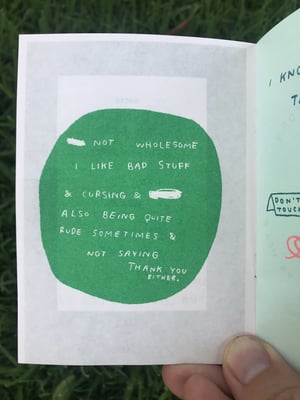 NOT WHOLESOME
I LIKE BAD STUFF
& CURSING &
ALSO BEING QUITE
RUDE SOMETIMES &
NOT SAYING
THANK YOU
EITHER.
I KNO
DON'T
TOUCH